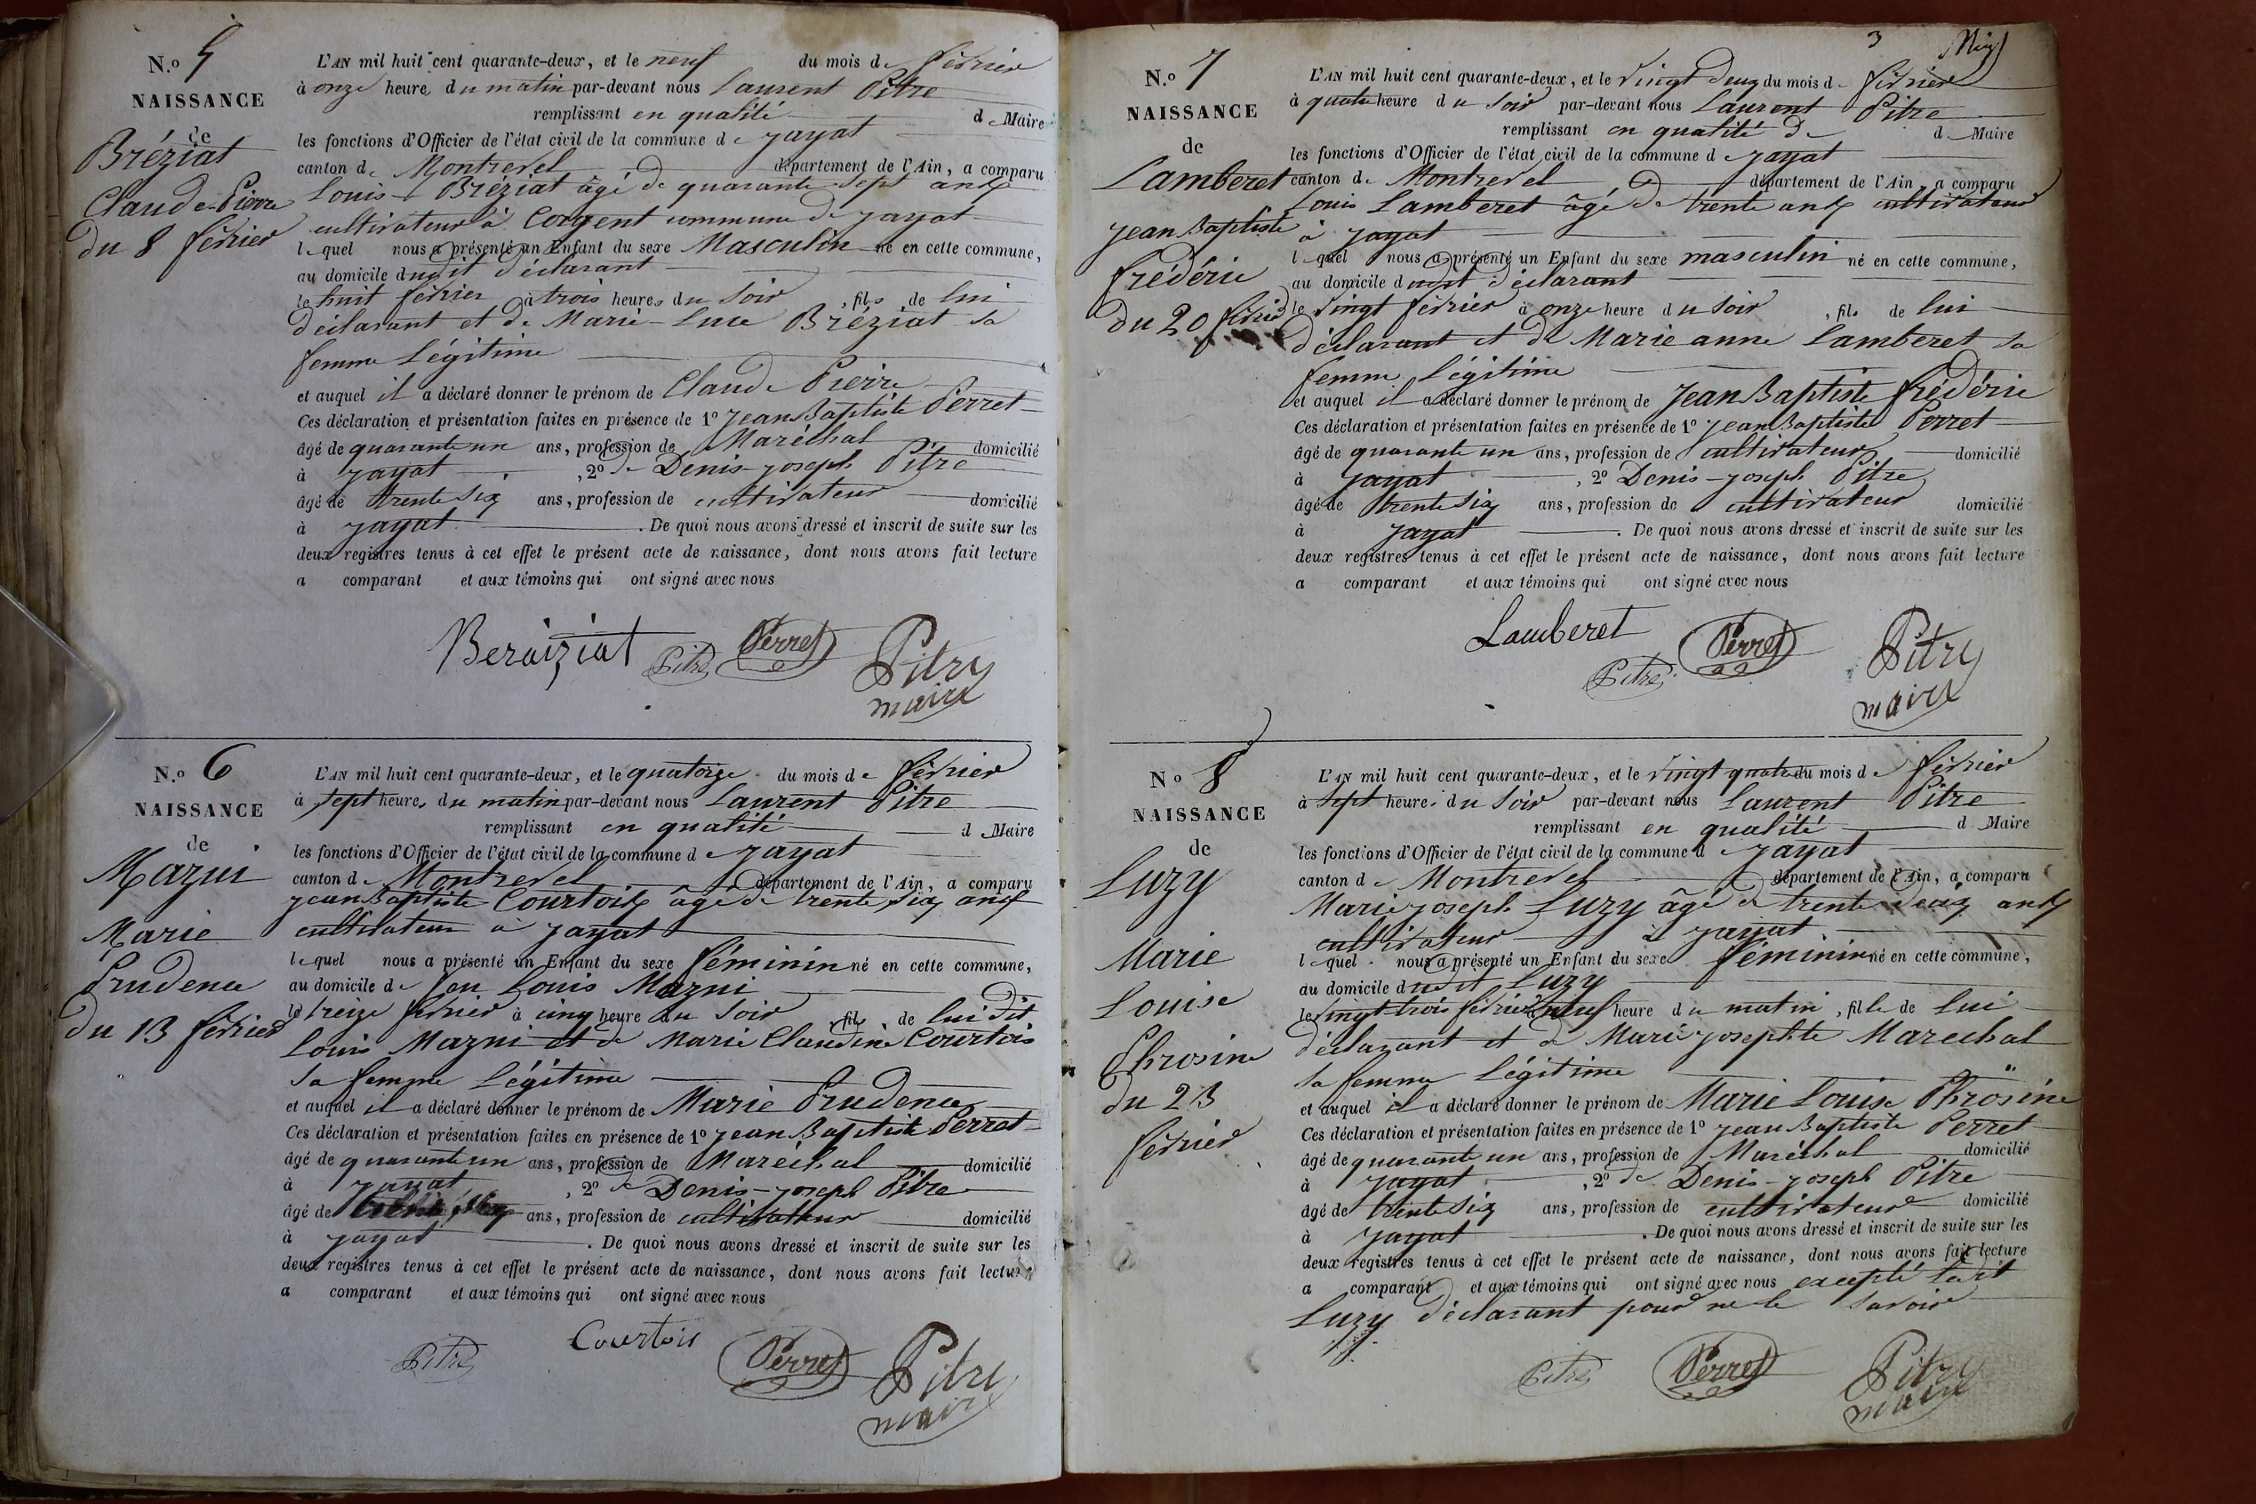 N.º 5
NAISSANCE
de
Bréziat
Claude Pierre
du 8 février
L'AN mil huit cent quarante-deux, et le neuf du mois de février
à onze heure du matin par-devant nous Laurent Pitre
remplissant en qualité d Maire
les fonctions d'Officier de l'état civil de la commune de Jayat
canton de Montrevel département de l'Ain, a comparu
Louis Bréziat âgé de quarante sept ans
cultivateur à Corgent commune de Jayat
lequel nous a présenté un Enfant du sexe Masculin né en cette commune,
au domicile dudit déclarant
le huit février à trois heures du soir, fils de lui
déclarant et de Marie-Luce Bréziat sa
femme légitime
et auquel il a déclaré donner le prénom de Claude Pierre
Ces déclaration et présentation faites en présence de 1º Jean Baptiste Perret
âgé de quarante un ans, profession de Maréchal domicilié
à Jayat, 2º de Denis-Joseph Pitre
âgé de trente six ans, profession de cultivateur domicilié
à Jayat. De quoi nous avons dressé et inscrit de suite sur les
deux registres tenus à cet effet le présent acte de naissance, dont nous avons fait lecture
a comparant et aux témoins qui ont signé avec nous
Beraiziat Pitre Perret Pitre
maire
N.º 6
NAISSANCE
de
Mazui
Marie
Prudence
du 13 février
L'AN mil huit cent quarante-deux, et le quatorze du mois de février
à sept heures du matin par-devant nous Laurent Pitre
remplissant en qualité d Maire
les fonctions d'Officier de l'état civil de la commune de Jayat
canton de Montrevel département de l'Ain, a comparu
Jean Baptiste Courtois âgé de trente six ans
cultivateur à Jayat
lequel nous a présenté un Enfant du sexe féminin né en cette commune,
au domicile de Louis Mazui
le treize février à cinq heure du soir fil de lui dit
Louis Mazui et de Marie Claudine Courtois
sa femme légitime
et auquel il a déclaré donner le prénom de Marie Prudence
Ces déclaration et présentation faites en présence de 1º Jean Baptiste Perret
âgé de quarante un ans, profession de Maréchal domicilié
à Jayat, 2º de Denis-Joseph Pitre
âgé de ans, profession de cultivateur domicilié
à Jayat. De quoi nous avons dressé et inscrit de suite sur les
deux registres tenus à cet effet le présent acte de naissance, dont nous avons fait lecture
a comparant et aux témoins qui ont signé avec nous
Pitre Courtois Perret Pitre
maire
3
N.º 7
NAISSANCE
de
Lamberet
Jean Baptiste
frédéric
du 20 février
L'AN mil huit cent quarante-deux, et le vingt deux du mois de février
à quatre heure du soir par-devant nous Laurent Pitre
remplissant en qualité de d Maire
les fonctions d'Officier de l'état civil de la commune de Jayat
canton de Montrevel département de l'Ain, a comparu
Louis Lamberet âgé de trente ans cultivateur
à Jayat
lequel nous a présenté un Enfant du sexe masculin né en cette commune,
au domicile dudit déclarant
le vingt février à onze heure du soir, fils de lui
déclarant et de Marie anne Lamberet sa
femme légitime
et auquel il a déclaré donner le prénom de Jean Baptiste frédéric
Ces déclaration et présentation faites en présence de 1º Jean Baptiste Perret
âgé de quarante un ans, profession de cultivateur domicilié
à Jayat, 2º Denis-Joseph Pitre
âgé de trente six ans, profession de cultivateur domicilié
à Jayat. De quoi nous avons dressé et inscrit de suite sur les
deux registres tenus à cet effet le présent acte de naissance, dont nous avons fait lecture
a comparant et aux témoins qui ont signé avec nous
Lamberet Pitre Perret Pitre
maire
Nº 8
NAISSANCE
de
Luzy
Marie
Louise
Phrosine
du 23
février
L'AN mil huit cent quarante-deux, et le vingt quatre du mois de février
à sept heure du soir par-devant nous Laurent Pitre
remplissant en qualité d Maire
les fonctions d'Officier de l'état civil de la commune de Jayat
canton de Montrevel département de l'Ain, a comparu
Marie Joseph Luzy âgé de trente deux ans
cultivateur à Jayat
lequel nous a présenté un Enfant du sexe féminin né en cette commune,
au domicile dudit Luzy
le vingt trois février à neuf heure du matin, fille de lui
déclarant et de Marie Josephte Marechal
sa femme légitime
et auquel il a déclaré donner le prénom de Marie Louise Phrosine
Ces déclaration et présentation faites en présence de 1º Jean Baptiste Perret
âgé de quarante un ans, profession de Maréchal domicilié
à Jayat, 2º de Denis-Joseph Pitre
âgé de trente six ans, profession de cultivateur domicilié
à Jayat. De quoi nous avons dressé et inscrit de suite sur les
deux registres tenus à cet effet le présent acte de naissance, dont nous avons fait lecture
a comparant et aux témoins qui ont signé avec nous excepté ledit
Luzy déclarant pour ne le savoir
Pitre Perret Pitre
maire